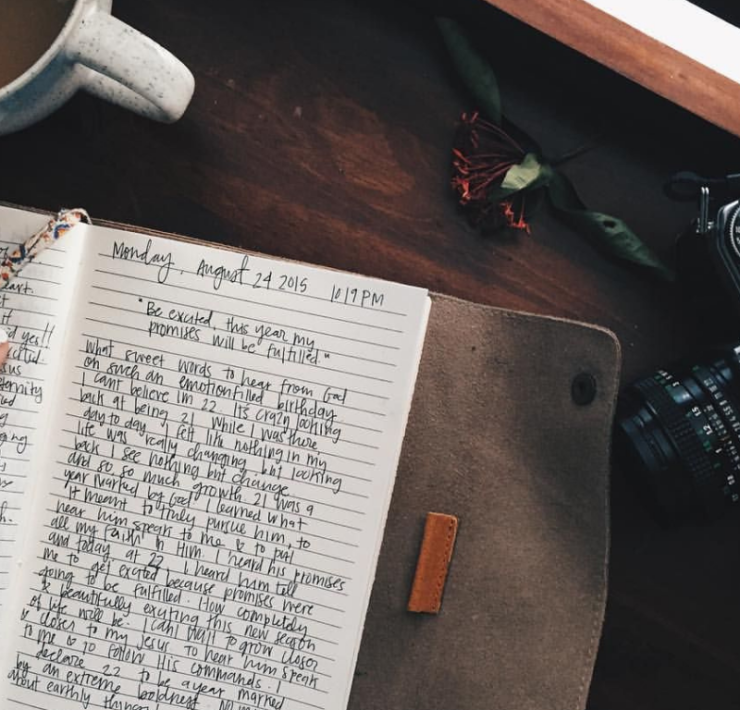 art.
yes!!
sus
ternity
ging
Monday, August 24 2015 10:19 PM
"Be excited, this year my
promises will be fulfilled"
What sweet words to hear from God
on such an emotion filled birthday.
I cant believe Im 22. Its crazy looking
back at being 21. While I was there,
day to day, I felt like nothing in my
life was really changing but looking
back I see nothing but change
and so so much growth. 21 was a
year marked by God. I learned what
it meant to truly pursue him, to
hear him speak to me & to put
all my faith in Him. I heard his promises
and today, at 22, I heard him tell
me to get excited because promises were
going to be fulfilled. How completely
& beautifully exciting this new season
of life will be. I cant wait to grow closer
& closer to my Jesus. To hear him speak
to me & to follow His commands. I
declare 22 to be a year marked
by an extreme boldness. No more
about earthly things!